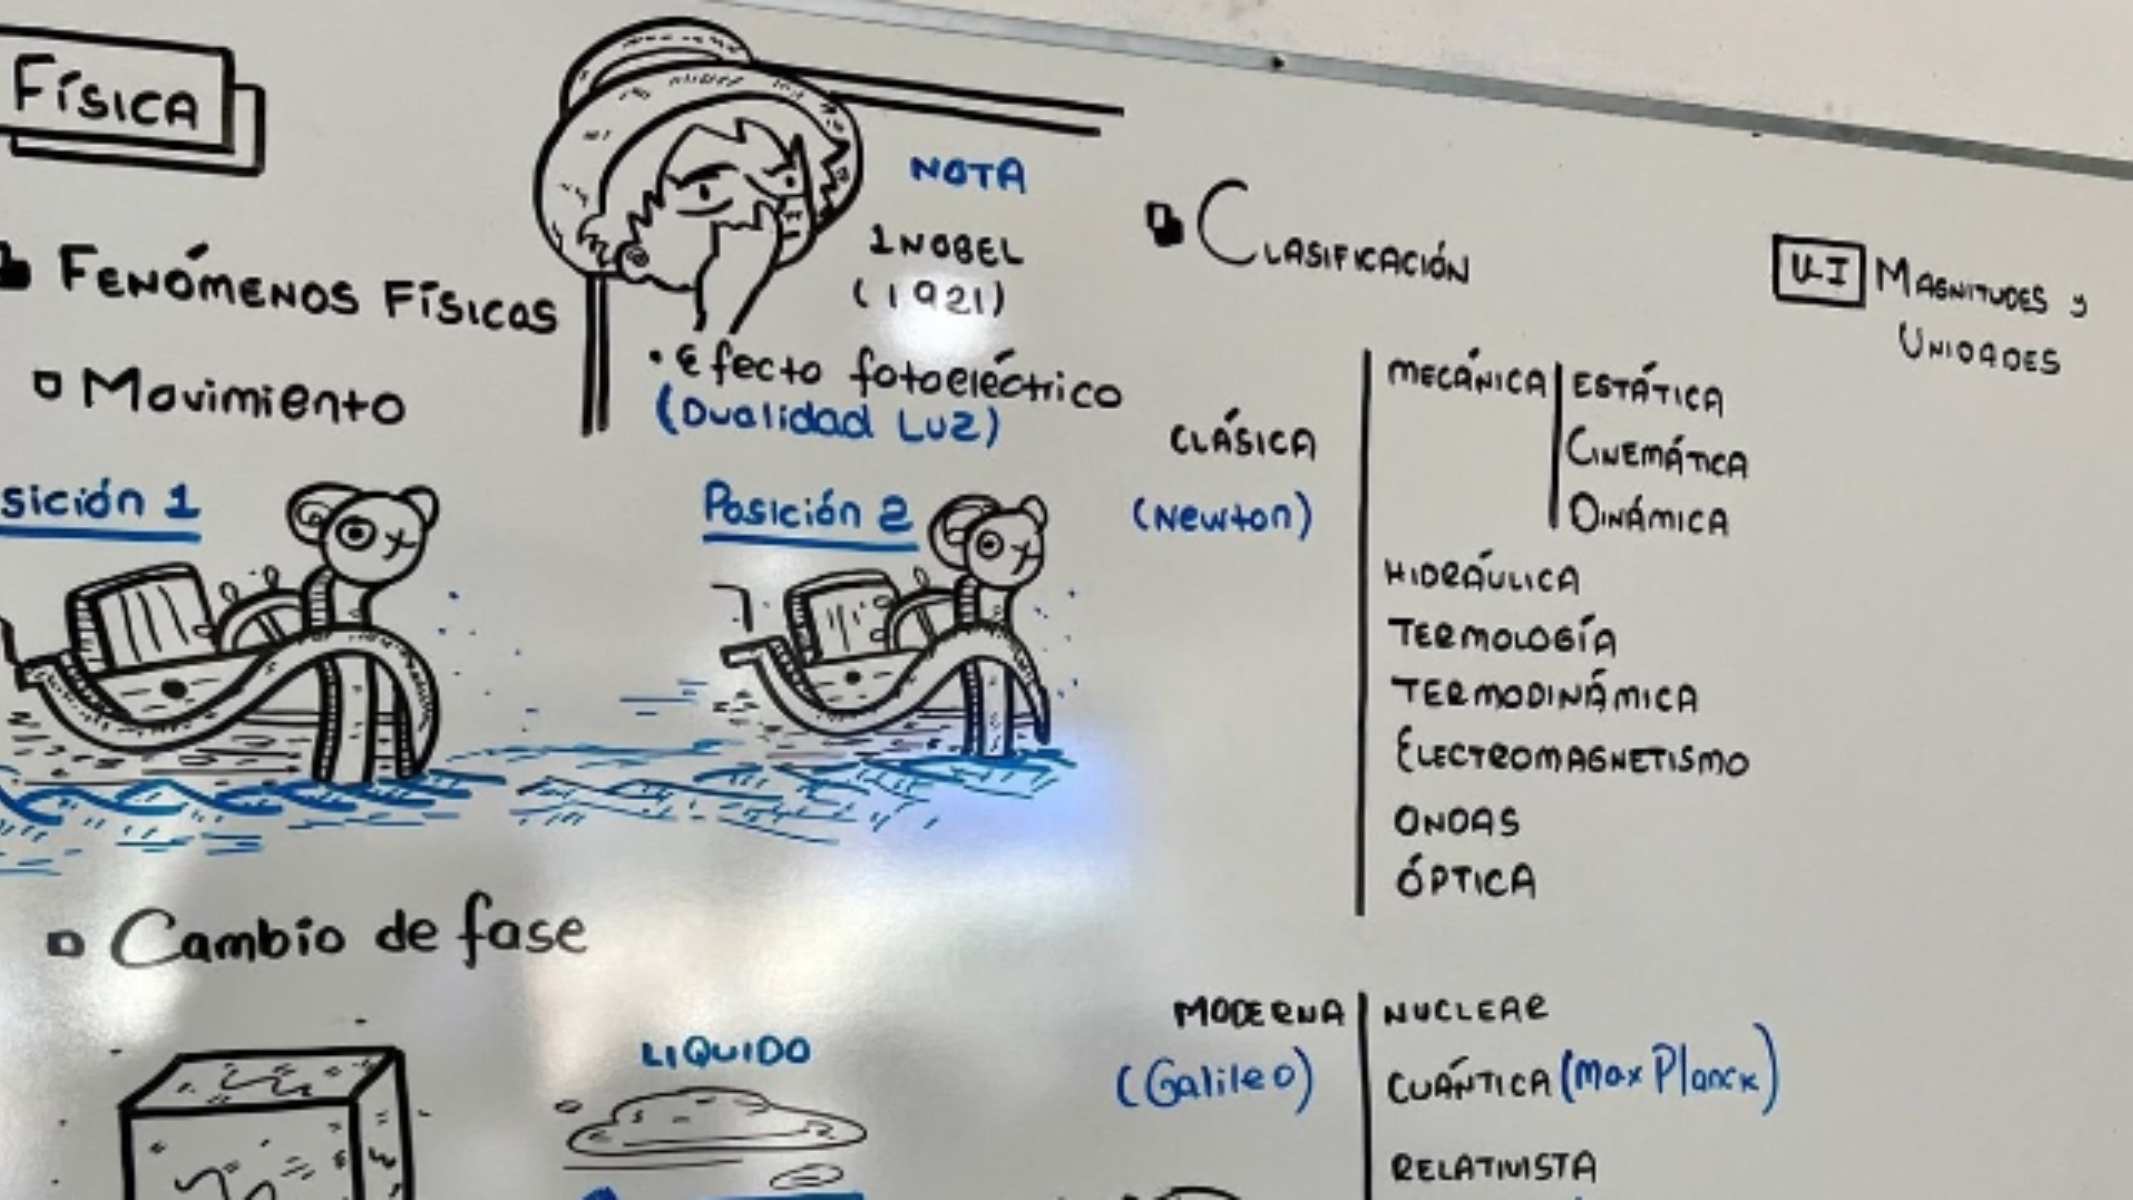 FÍSICA
FENÓMENOS FÍSICOS
Movimiento
sición 1
Posición 2
NOTA
1 NOBEL
(1921)
• Efecto fotoeléctrico
(Dualidad Luz)
Cambio de fase
LIQUIDO
CLASIFICACIÓN
CLÁSICA
(Newton)
MECÁNICA
ESTÁTICA
CINEMÁTICA
DINÁMICA
HIDRÁULICA
TERMOLOGÍA
TERMODINÁMICA
ELECTROMAGNETISMO
ONDAS
ÓPTICA
MODERNA
(Galileo)
NUCLEAR
CUÁNTICA (Max Planck)
RELATIVISTA
U-I MAGNITUDES y
UNIDADES